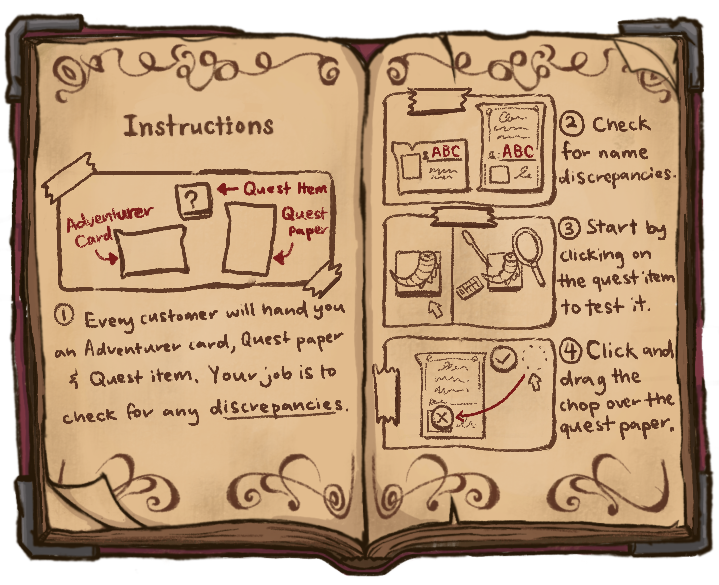 Instructions
?
← Quest Item
Adventurer
Card
Quest
paper
① Every customer will hand you
an Adventurer card, Quest paper
& Quest item. Your job is to
check for any discrepancies.
ABC
ABC
② Check
for name
discrepancies.
③ Start by
clicking on
the quest item
to test it.
④ Click and
drag the
chop over the
quest paper.